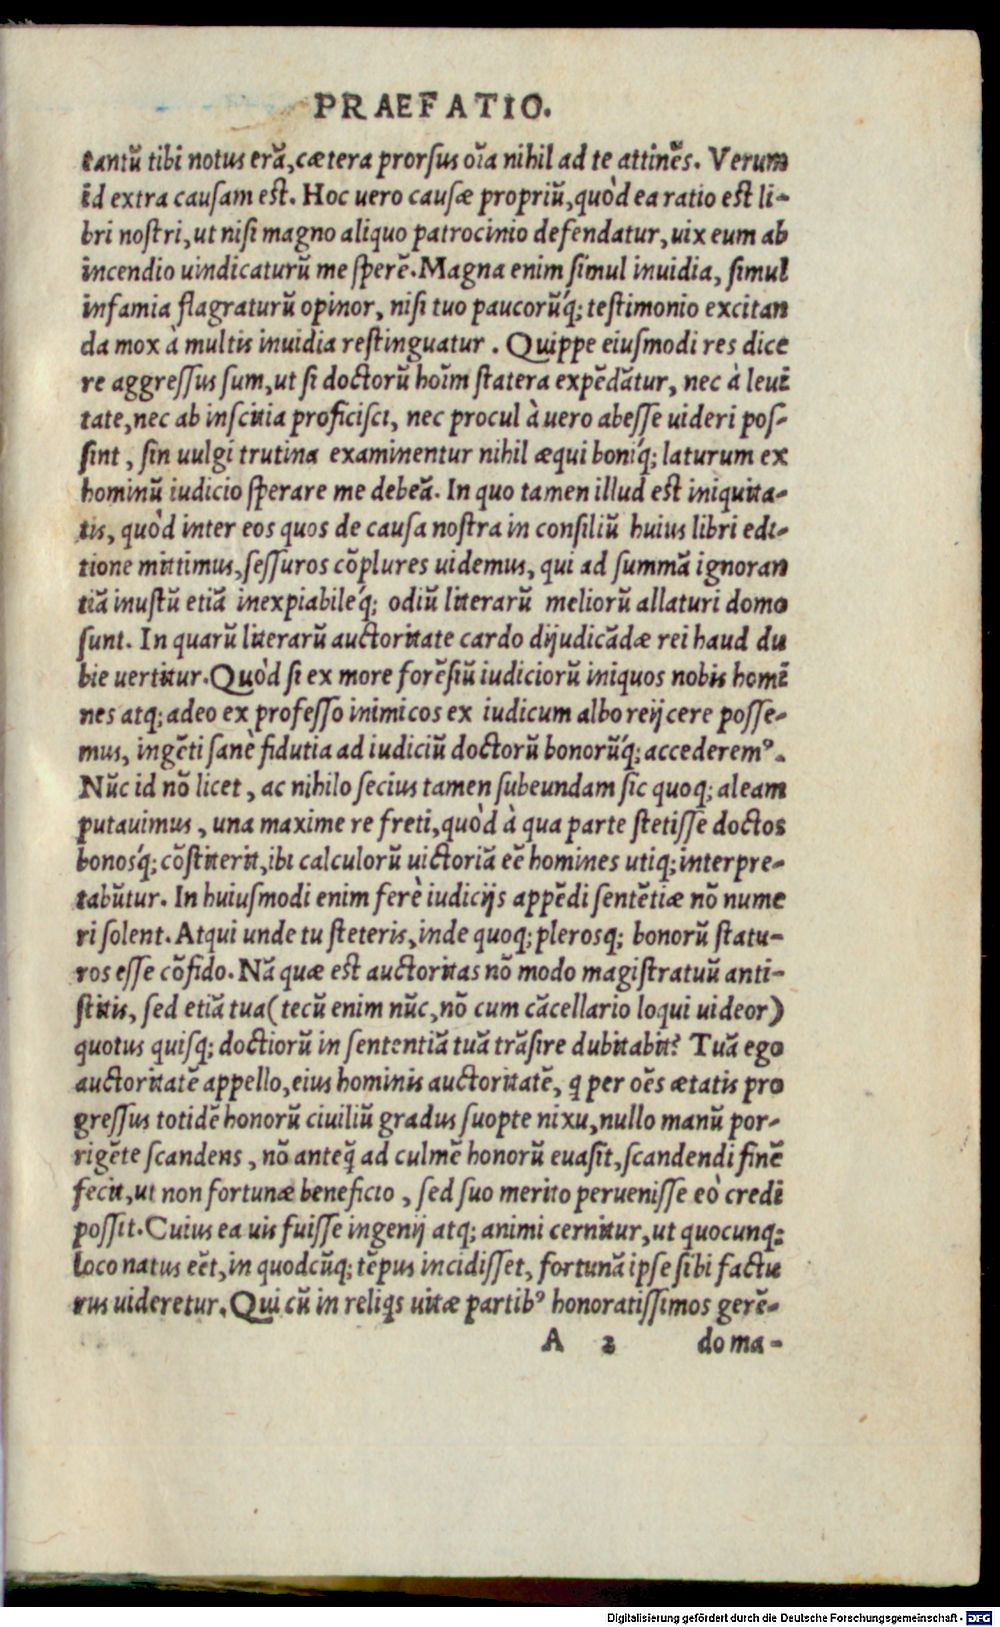 PRAEFATIO.
tantũ tibi notus erã, cætera prorsus oĩa nihil ad te attinẽs. Verum
id extra causam est. Hoc uero causæ propriũ, quòd ea ratio est li-
bri nostri, ut nisi magno aliquo patrocinio defendatur, uix eum ab
incendio uindicaturũ me sperẽ. Magna enim simul inuidia, simul
infamia flagraturũ opinor, nisi tuo paucorũq́; testimonio excitan
da mox à multis inuidia restinguatur. Quippe eiusmodi res dice
re aggressus sum, ut si doctorũ hoĩm statera expẽdãtur, nec à leui
tate, nec ab inscitia proficisci, nec procul à uero abesse uideri pos-
sint, sin uulgi trutina examinentur nihil æqui boniq́; laturum ex
hominũ iudicio sperare me debeã. In quo tamen illud est iniquita-
tis, quòd inter eos quos de causa nostra in consiliũ huius libri edi-
tione mittimus, sessuros cõplures uidemus, qui ad summã ignoran
tiã inustũ etiã inexpiabileq́; odiũ literarũ meliorũ allaturi domo
sunt. In quarũ literarũ auctoritate cardo dijudicãdæ rei haud du
bie uertitur. Quòd si ex more forẽsiũ iudiciorũ iniquos nobis homĩ
nes atq; adeo ex professo inimicos ex iudicum albo reijcere posse-
mus, ingẽti sanè fidutia ad iudiciũ doctorũ bonorũq́; accederemꝰ.
Nũc id nõ licet, ac nihilo secius tamen subeundam sic quoq; aleam
putauimus, una maxime re freti, quòd à qua parte stetisse doctos
bonosq́; cõstiterit, ibi calculorũ uictoriã eẽ homines utiq; interpre-
tabũtur. In huiusmodi enim ferè iudicijs appẽdi sentẽtiæ nõ nume
ri solent. Atqui unde tu steteris, inde quoq; plerosq; bonorũ statu-
ros esse cõfido. Nã quæ est auctoritas nõ modo magistratuũ anti-
stitis, sed etiã tua (tecũ enim nũc, nõ cum cãcellario loqui uideor)
quotus quisq; doctiorũ in sententiã tuã trãsire dubitabit? Tuã ego
auctoritatẽ appello, eius hominis auctoritatẽ, q̇ per oẽs ætatis pro
gressus totidẽ honorũ ciuiliũ gradus suopte nixu, nullo manũ por-
rigẽte scandens, nõ anteq̃ ad culmẽ honorũ euasit, scandendi finẽ
fecit, ut non fortunæ beneficio, sed suo merito peruenisse eò credi
possit. Cuius ea uis fuisse ingenij atq; animi cernitur, ut quocunq;
loco natus eẽt, in quodcũq; tẽpus incidisset, fortunã ipse sibi factu
rus uideretur. Qui cũ in reliqs uitæ partibꝰ honoratissimos gerẽ-
A 2 do ma-
Digitalisierung gefördert durch die Deutsche Forschungsgemeinschaft - DFG